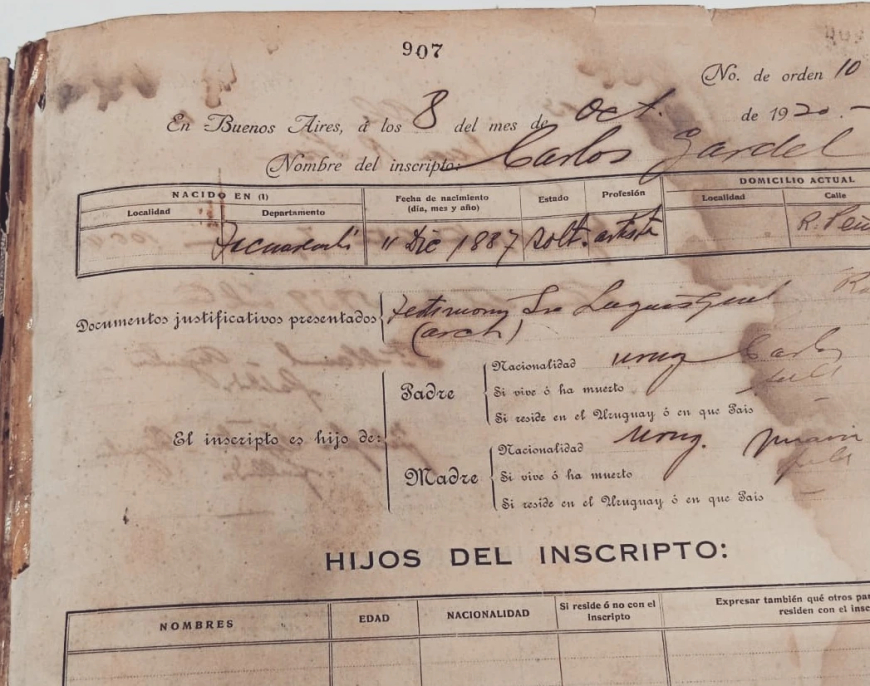 907
No. de orden 10
En Buenos Aires, á los 8 del mes de Oct. de 1920.-
Nombre del inscripto: Carlos Gardel
NACIDO EN (1)
Localidad Departamento
Fecha de nacimiento
(día, mes y año)
Estado
Profesión
DOMICILIO ACTUAL
Localidad Calle
11 Dic 1887 solt. artista R. Peñ
Documentos justificativos presentados
(arch)
El inscripto es hijo de:
Padre
Nacionalidad urug Carlos
Si vive ó ha muerto
Si reside en el Uruguay ó en que País
Madre
Nacionalidad urug.
Si vive ó ha muerto
Si reside en el Uruguay ó en que País
HIJOS DEL INSCRIPTO:
NOMBRES
EDAD
NACIONALIDAD
Si reside ó no con el
inscripto
Expresar también qué otros pa
residen con el insc